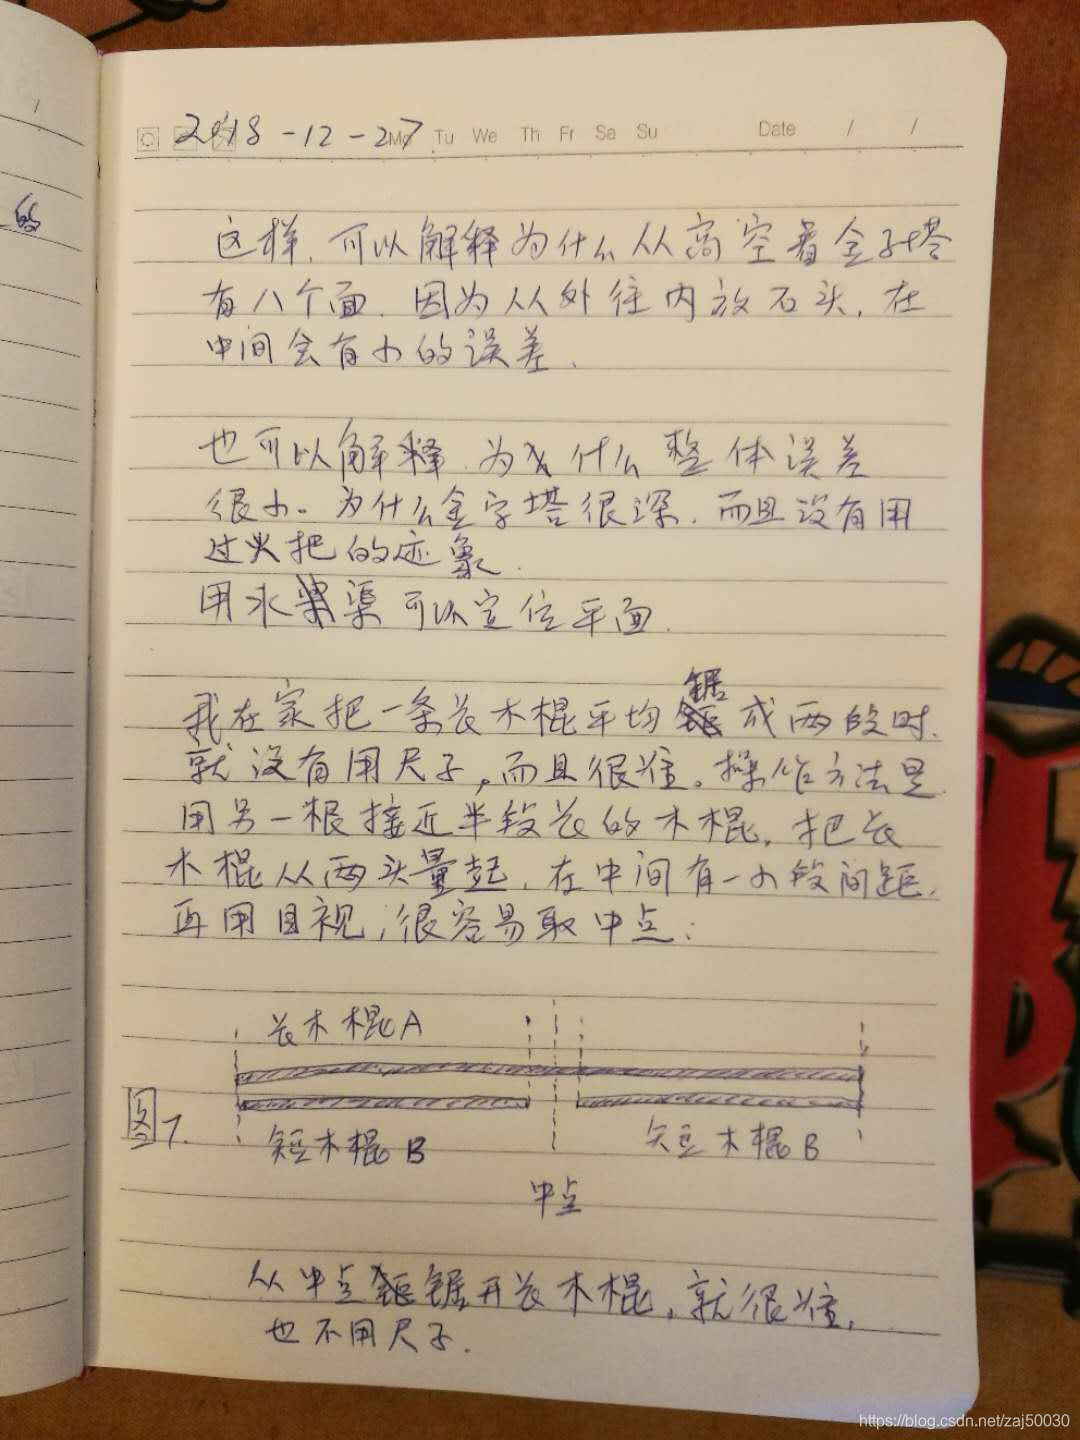 的
2018-12-27
Mo Tu We Th Fr Sa Su Date / /
这样,可以解释为什么从高空看金字塔
有八个面.因为从外往内放石头,在
中间会有小的误差.
也可以解释.为什么整体误差
很小。为什么金字塔很深.而且没有用
过火把的迹象.
用水渠可以定位平面.
我在家把一条长木棍平均锯成两段时.
就没有用尺子,而且很准。操作方法是
用另一根接近半段长的木棍,把长
木棍从两头量起,在中间有一小段间距,
再用目视,很容易取中点:
长木棍A
图1.
短木棍B 短木棍B
中点
从中点锯开长木棍,就很准,
也不用尺子.
https://blog.csdn.net/zaj50030